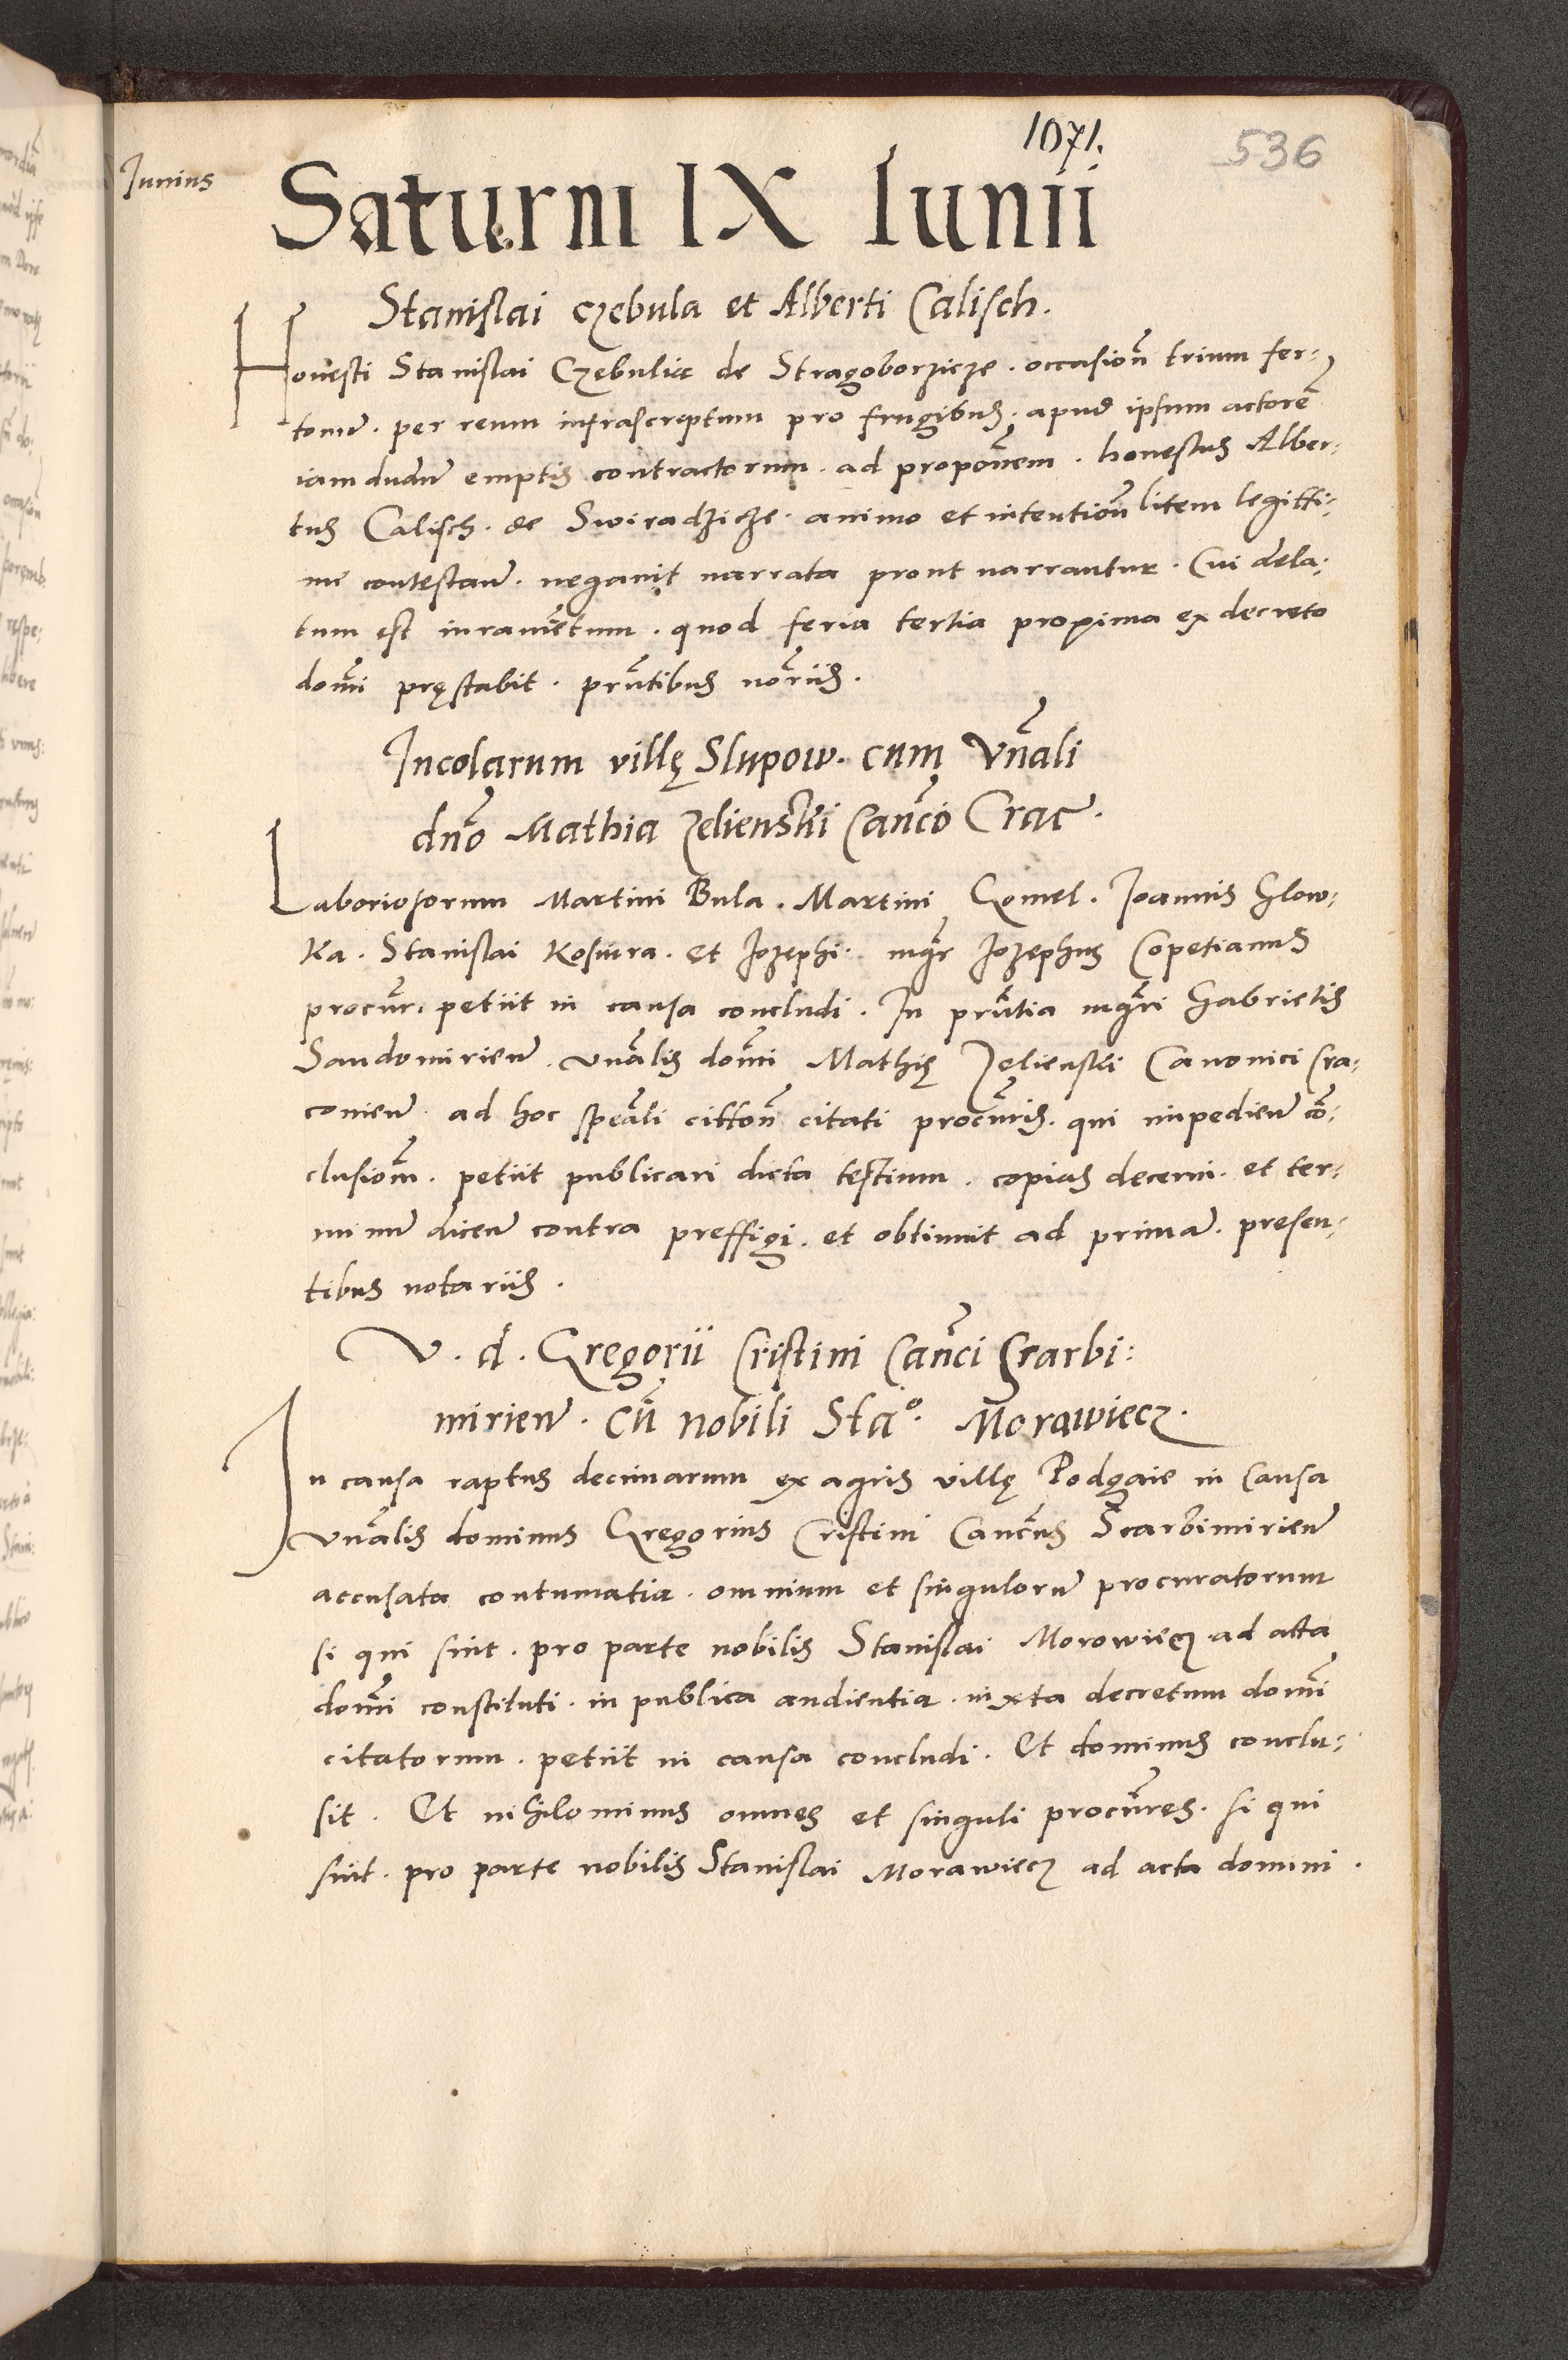 1071.
536
Iunius
Saturni IX Iunii
Stanislai Czebula et Alberti Calisch.
Honesti Stanislai Czebulię de Stragoborzicze. occasioñ trium fer-
tonuȝ. per reum infrascreptum pro frugibus. apud ipsum actorē
iam duduȝ emptis contractorum. ad propoñem. honestus Alber-
tus Calisch. de Swiradzicze. animo et intentioñ litem legitti-
me contestanȝ. negavit narrata prout narrantur. Cui dela-
tum est iuramētum. quod feria tertia proxima ex decreto
domñi pręstabit. prñtibus noriis.
Incolarum villę Slupow. cum Vñali
dño Mathia Zelienski Cañco Crac.
Laboriosorum Martini Bula. Martini Gomel. Joannis Glow-
ka. Stanislai Kosiura. et Jozephi. mgr Jozephus Copetianus
procur. petiit in causa concludi. In prñtia mgri Gabrielis
Sandomirienȝ. vñalis domñi Mathię Zelienski Canonici Cra-
covienȝ. ad hoc speali cittoñ citati procuris. qui impedienȝ cō-
clusioñm. petiit publicari dicta testium. copias decerni. et ter-
minuȝ dicenȝ contra preffigi. et obtinuit ad primaȝ. presen-
tibus notariis.
V. d. Gregorii Cristini Cañci Scarbi-
mirienȝ. cū nobili Staº. Morawiecz.
In causa raptus decimarum ex agris villę Podgaie in causa
vñalis dominus Gregorius Cristini Cancus Scarbimirienȝ
accusata contumatia. omnium et singuloruȝ procuratorum
si qui sint. pro parte nobilis Stanislai Morowiecz ad acta
domñi constituti. in publica audientia. iuxta decretum domñi
citatorum. petiit in causa concludi. Et dominus conclu-
sit. Et nihilominus omnes et singuli procures. si qui
sint. pro parte nobilis Stanislai Morawiecz ad acta domini.